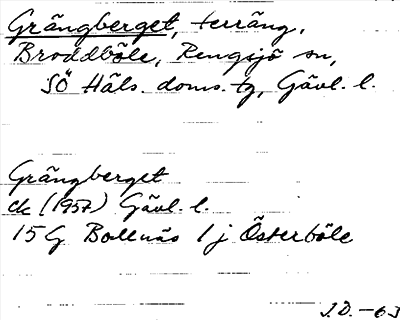 Grängberget, terräng,
Broddböle, Rengsjö sn,
SÖ Häls. doms. tg, Gävl. l.
Grängberget
ek (1957) Gävl. l.
15 G Bollnäs 1 j Österböle
J.D. -63